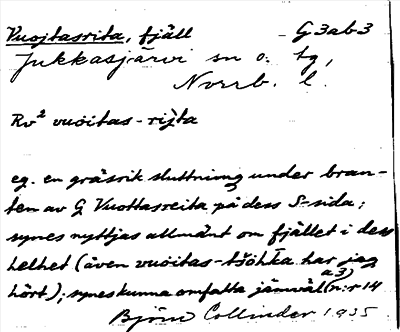 Vuojtasrita, fjäll G3ab3
Jukkasjärvi sn o. tg,
Norrb. l.
Rv² vuoitas-rijta
eg. en gräsrik sluttning under bran-
ten av G Vuottasreita på dess S-sida;
synes nyttjas allmänt om fjället i dess
helhet (även vuoitas-tšohkka har jag
hört); synes kunna omfatta jämväl (n:r 14
a3)
Björn Collinder 1935